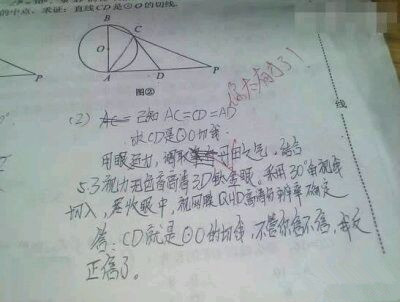 的中点，求证：直线CD是⊙O的切线.
B
C
O
A
D
P
P
图②
你太有才了！
线
(2) 已知 AC=CD=AD
求CD是⊙O切线
用眼延力，调取丹田之气，结合
5.3视力和包含高清3D钛金眼。采用30°角视线
切入，聚收眼中，视网膜QHD高清的斜率确定
答：CD就是⊙O的切线，不管你信不信，我反
正信了。